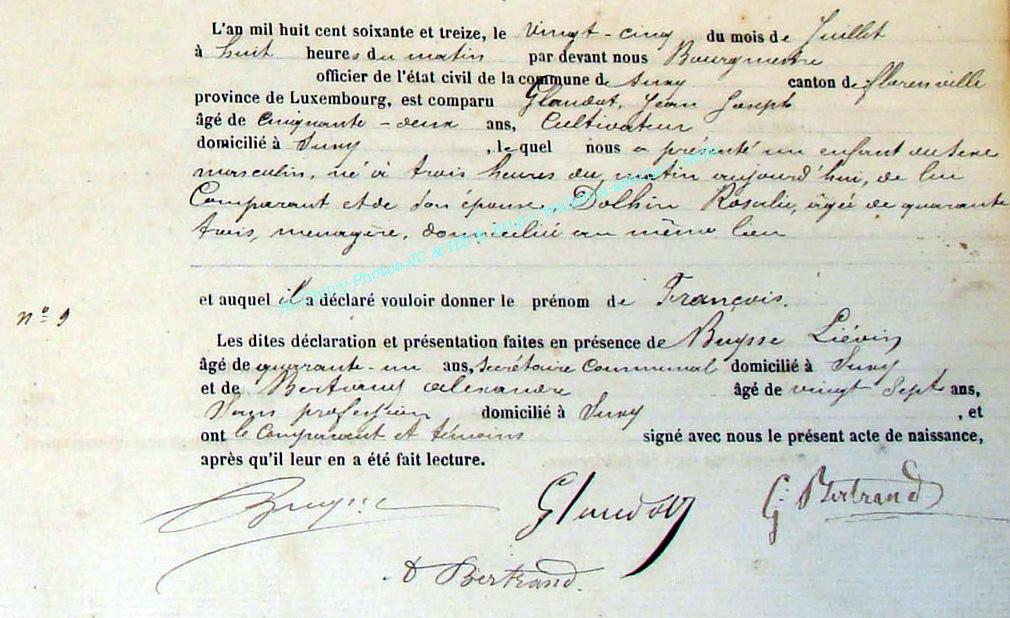 L'an mil huit cent soixante et treize, le vingt-cinq du mois de Juillet
à huit heures du matin par devant nous Bourgmestre
officier de l'état civil de la commune de Suxy canton de florenville
province de Luxembourg, est comparu Glaudot, Jean Joseph
âgé de Cinquante-deux ans, Cultivateur
domicilié à Suxy, lequel nous a présenté un enfant du sexe
masculin, né à trois heures du matin aujourd'hui, de lui
Comparant et de son épouse Dolhin Rosalie, âgée de quarante
trois, menagère, domicilié au même lieu
et auquel il a déclaré vouloir donner le prénom de François.
n° 9
Les dites déclaration et présentation faites en présence de Buysse Liévin
âgé de quarante-un ans, secrétaire Communal domicilié à Suxy
et de Bertrand alexandre âgé de vingt sept ans,
Sans profession, domicilié à Suxy, et
ont le Comparant et témoins signé avec nous le présent acte de naissance,
après qu'il leur en a été fait lecture.
Buysse Glaudot G. Bertrand
A Bertrand.